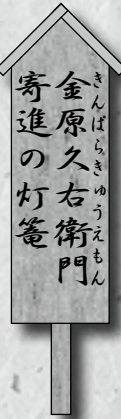 きんばらきゅうえもん
金原久右衛門
寄進の灯篭